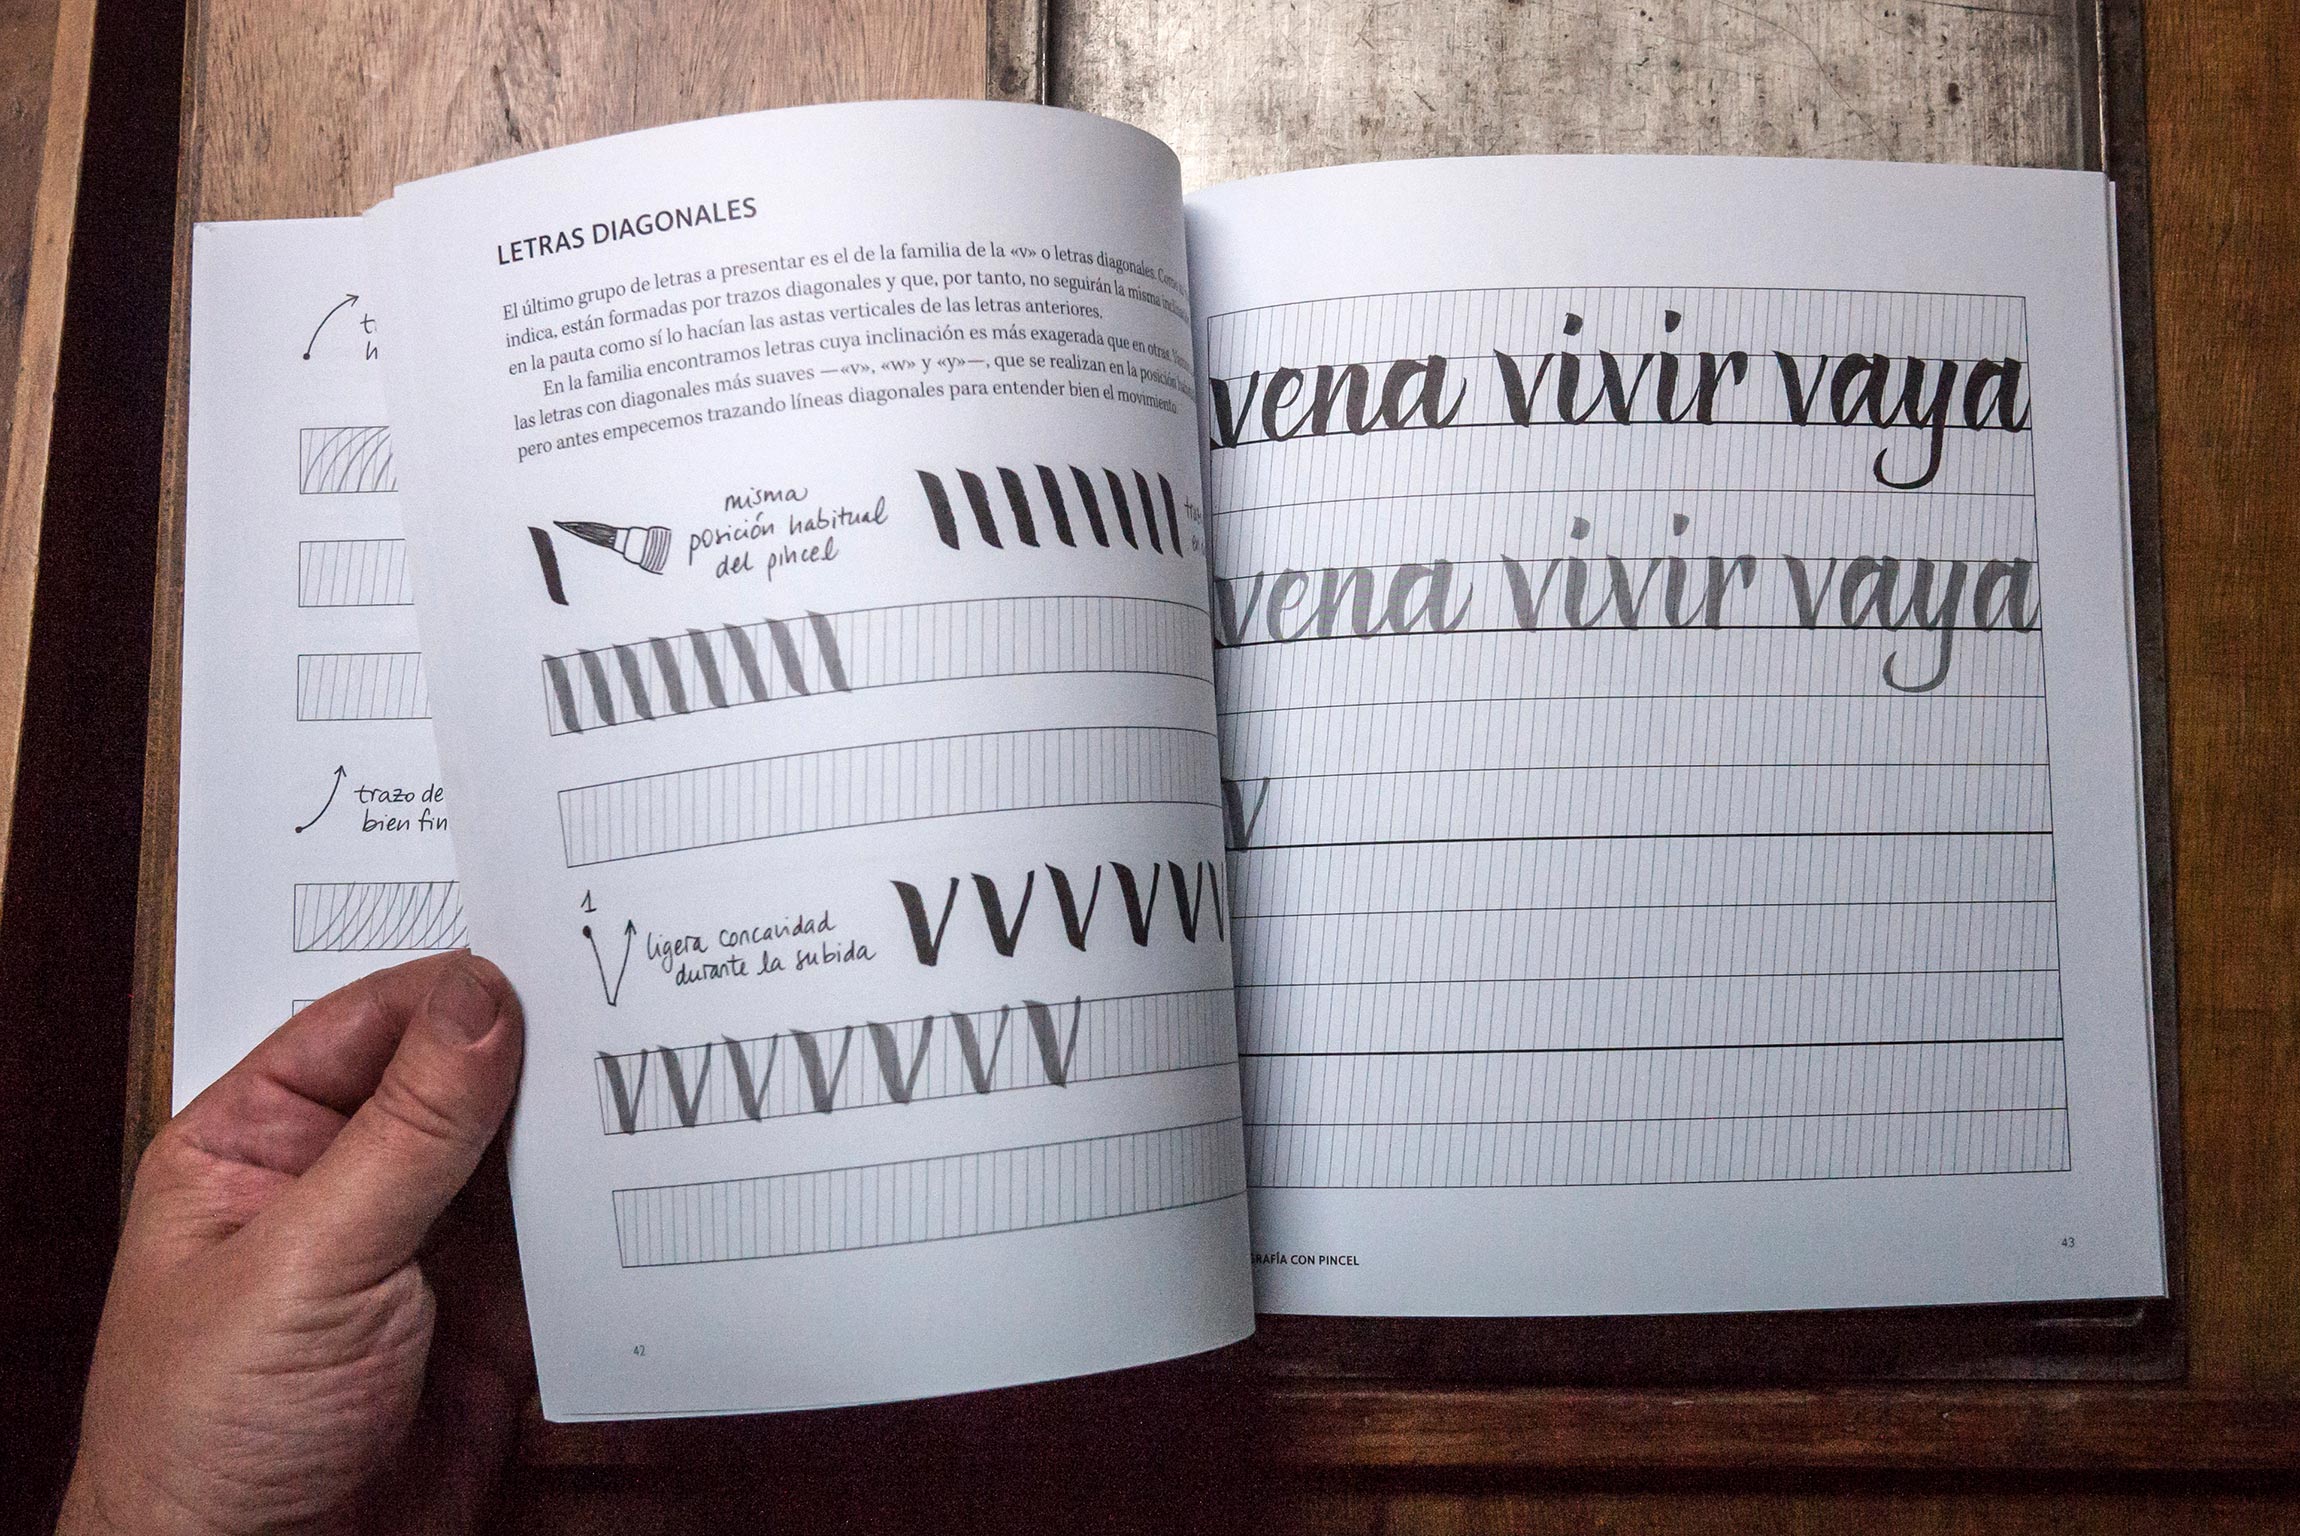 trazo de
bien fin
LETRAS DIAGONALES
El último grupo de letras a presentar es el de la familia de la «v» o letras diagonales.
indica, están formadas por trazos diagonales y que, por tanto, no seguirán la misma
en la pauta como sí lo hacían las astas verticales de las letras anteriores.
En la familia encontramos letras cuya inclinación es más exagerada que en otras.
las letras con diagonales más suaves —«v», «w» y «y»—, que se realizan en la posición
pero antes empecemos trazando líneas diagonales para entender bien el movimiento
misma
posición habitual
del pincel
1
ligera concavidad
durante la subida
V V V V V V
V V V V V V V
42
vena vivir vaya
vena vivir vaya
v
GRAFÍA CON PINCEL
43